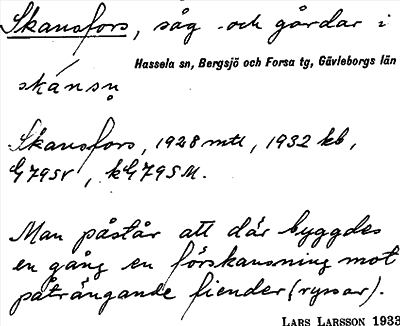 Skansfors, såg och gårdar i
Hassela sn, Bergsjö och Forsa tg, Gävleborgs län
skánsn̥
Skansfors, 1928 mtl, 1932 kb,
G79SV, kG79SM.
Man påstår att där byggdes
en gång en förskansning mot
påträngande fiender (ryssar).
LARS LARSSON 1933